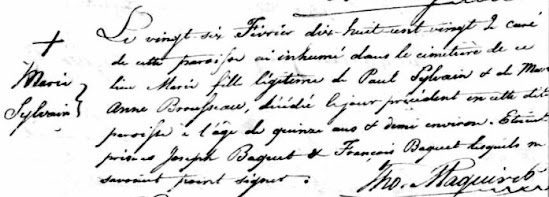 Marie
Sylvain
Le vingt six Février dix-huit cent vingt Je curé
de cette paroisse ai inhumé dans le cimetière de ce
lieu Marie fille légitime de Paul Sylvain & de Marie
Anne Brousseau, décédée le jour précédent en cette dite
paroisse à l'âge de quinze ans & demi environ. Etaient
présens Joseph Baquet & François Baquet lesquels n
savoient point signer.
Tho. Maguire